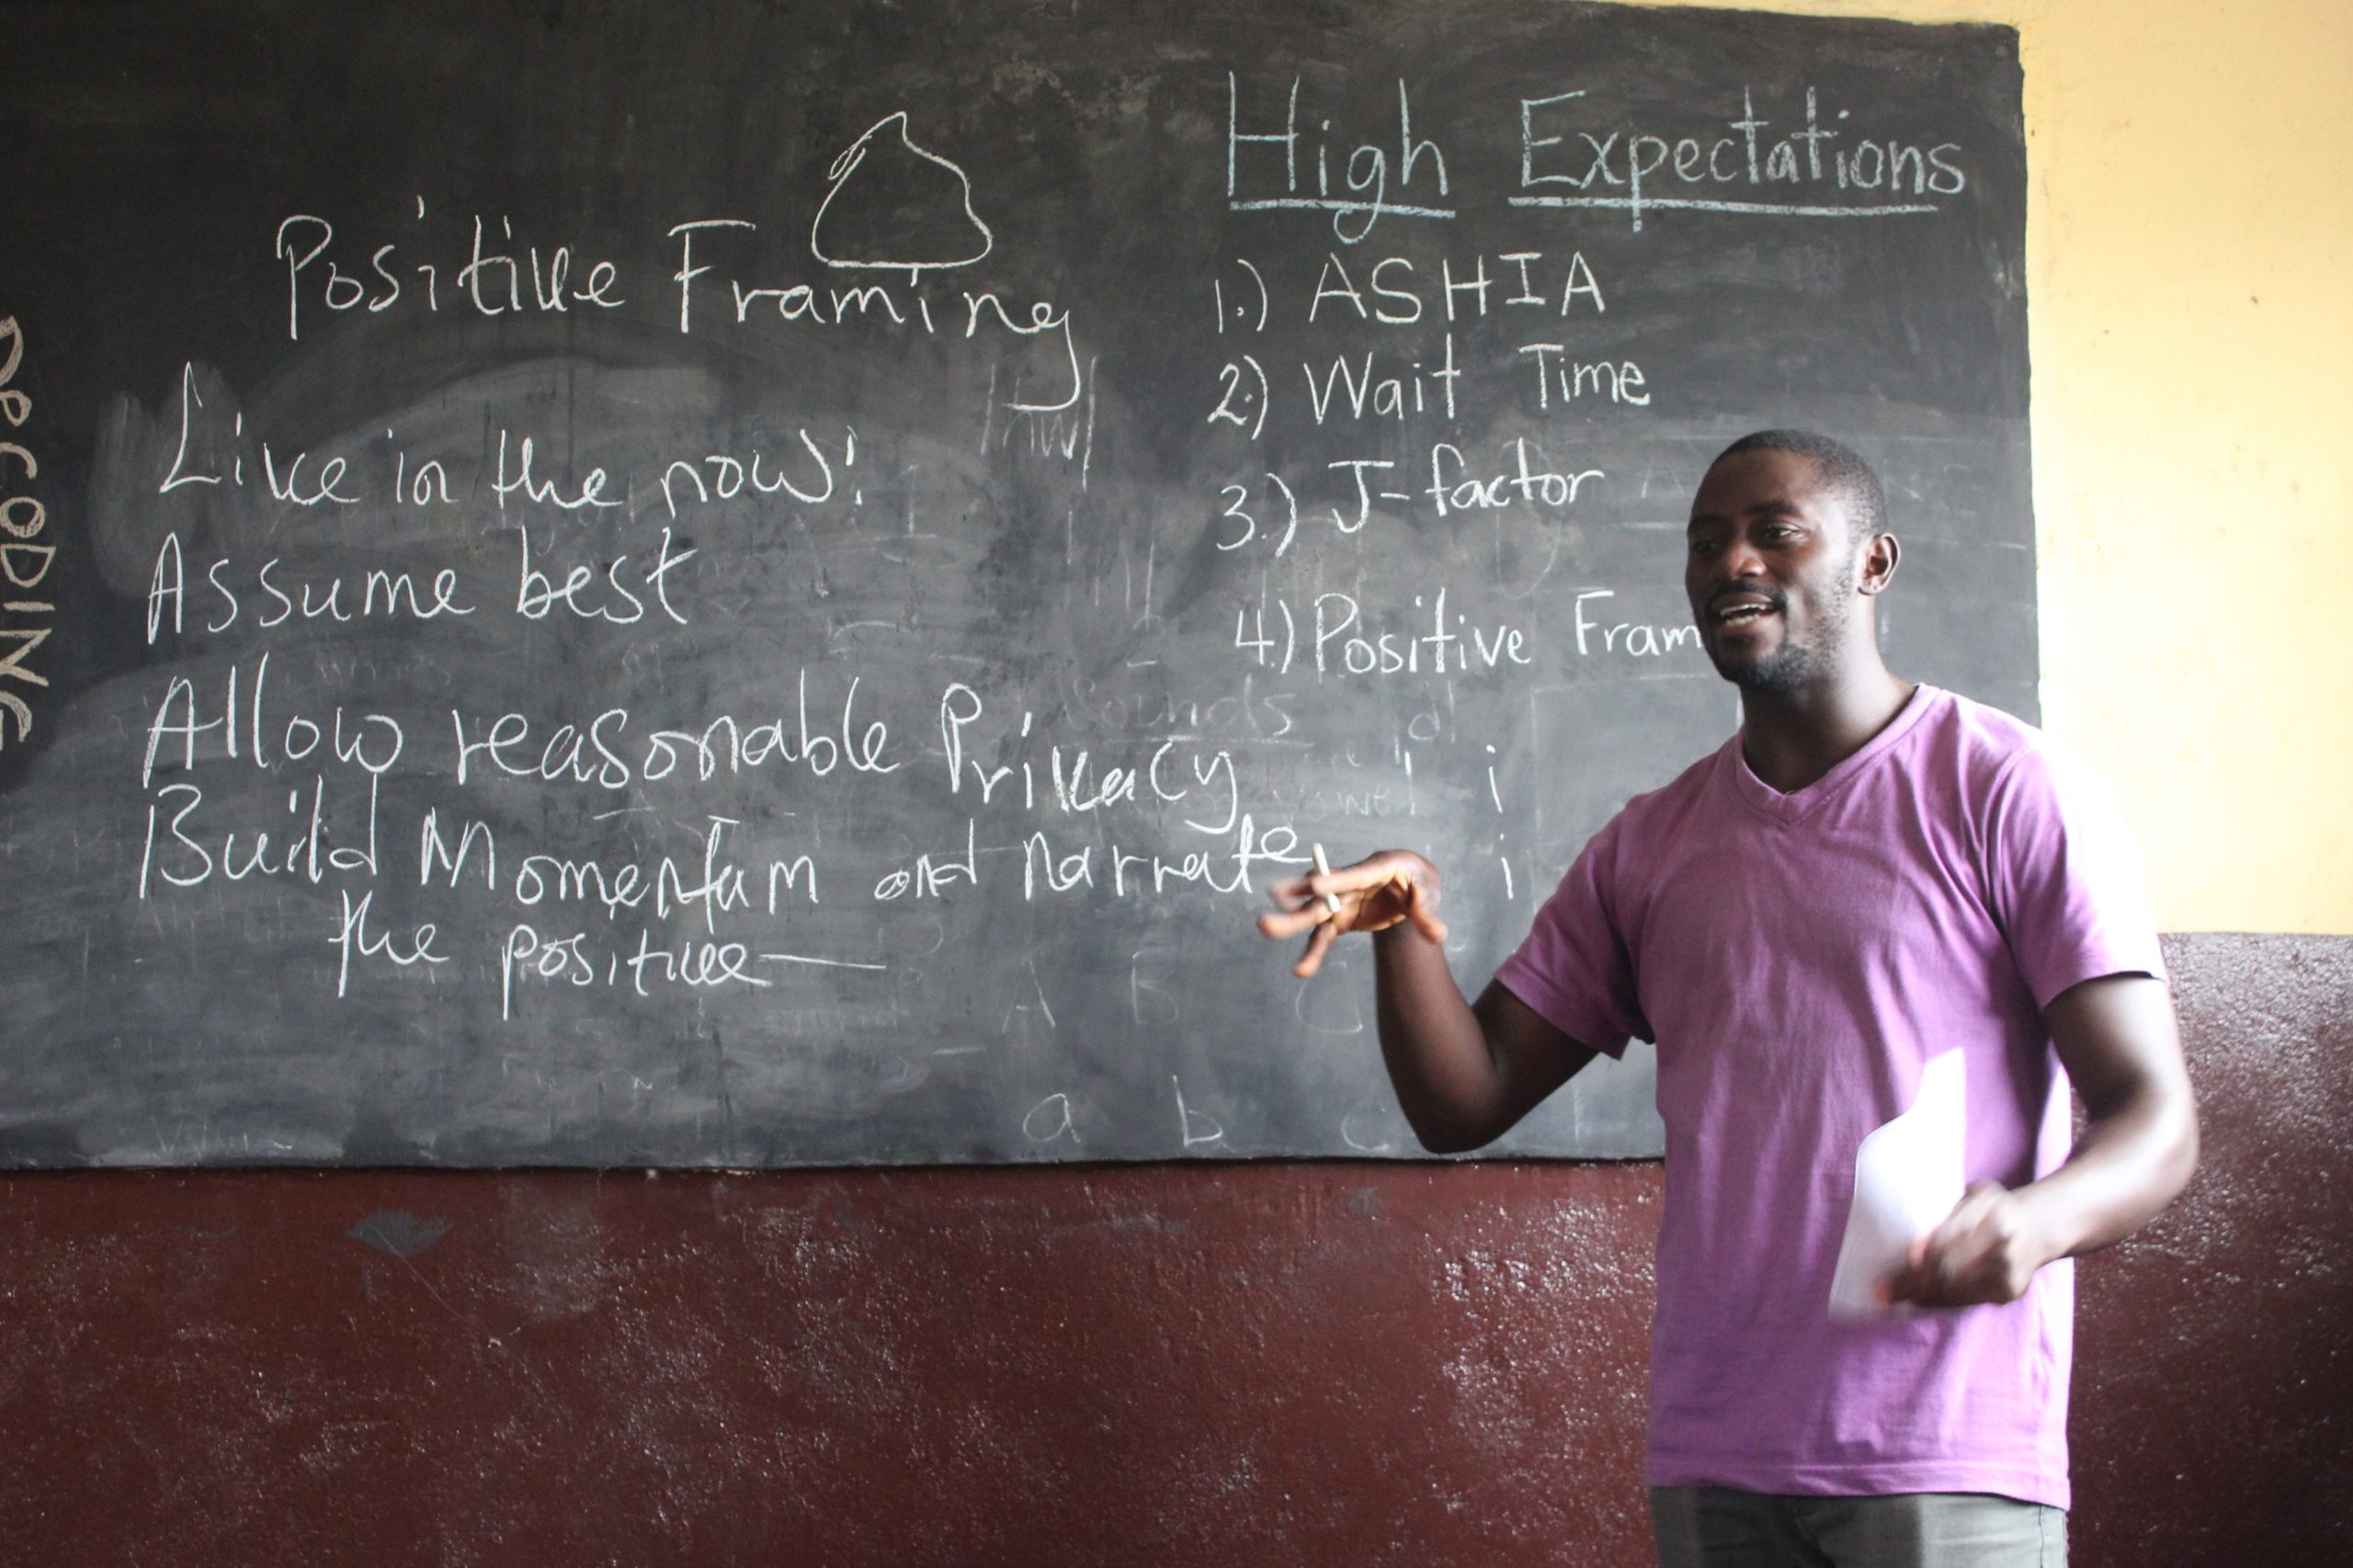 DeCODING
Positive Framing
Live in the now!
Assume best
Allow reasonable Privacy
Build Momentum and narrate
the positive
High Expectations
1.) ASHIA
2) Wait Time
3.) J-factor
4.) Positive Fram
ounds
i
i
A B C
a b c